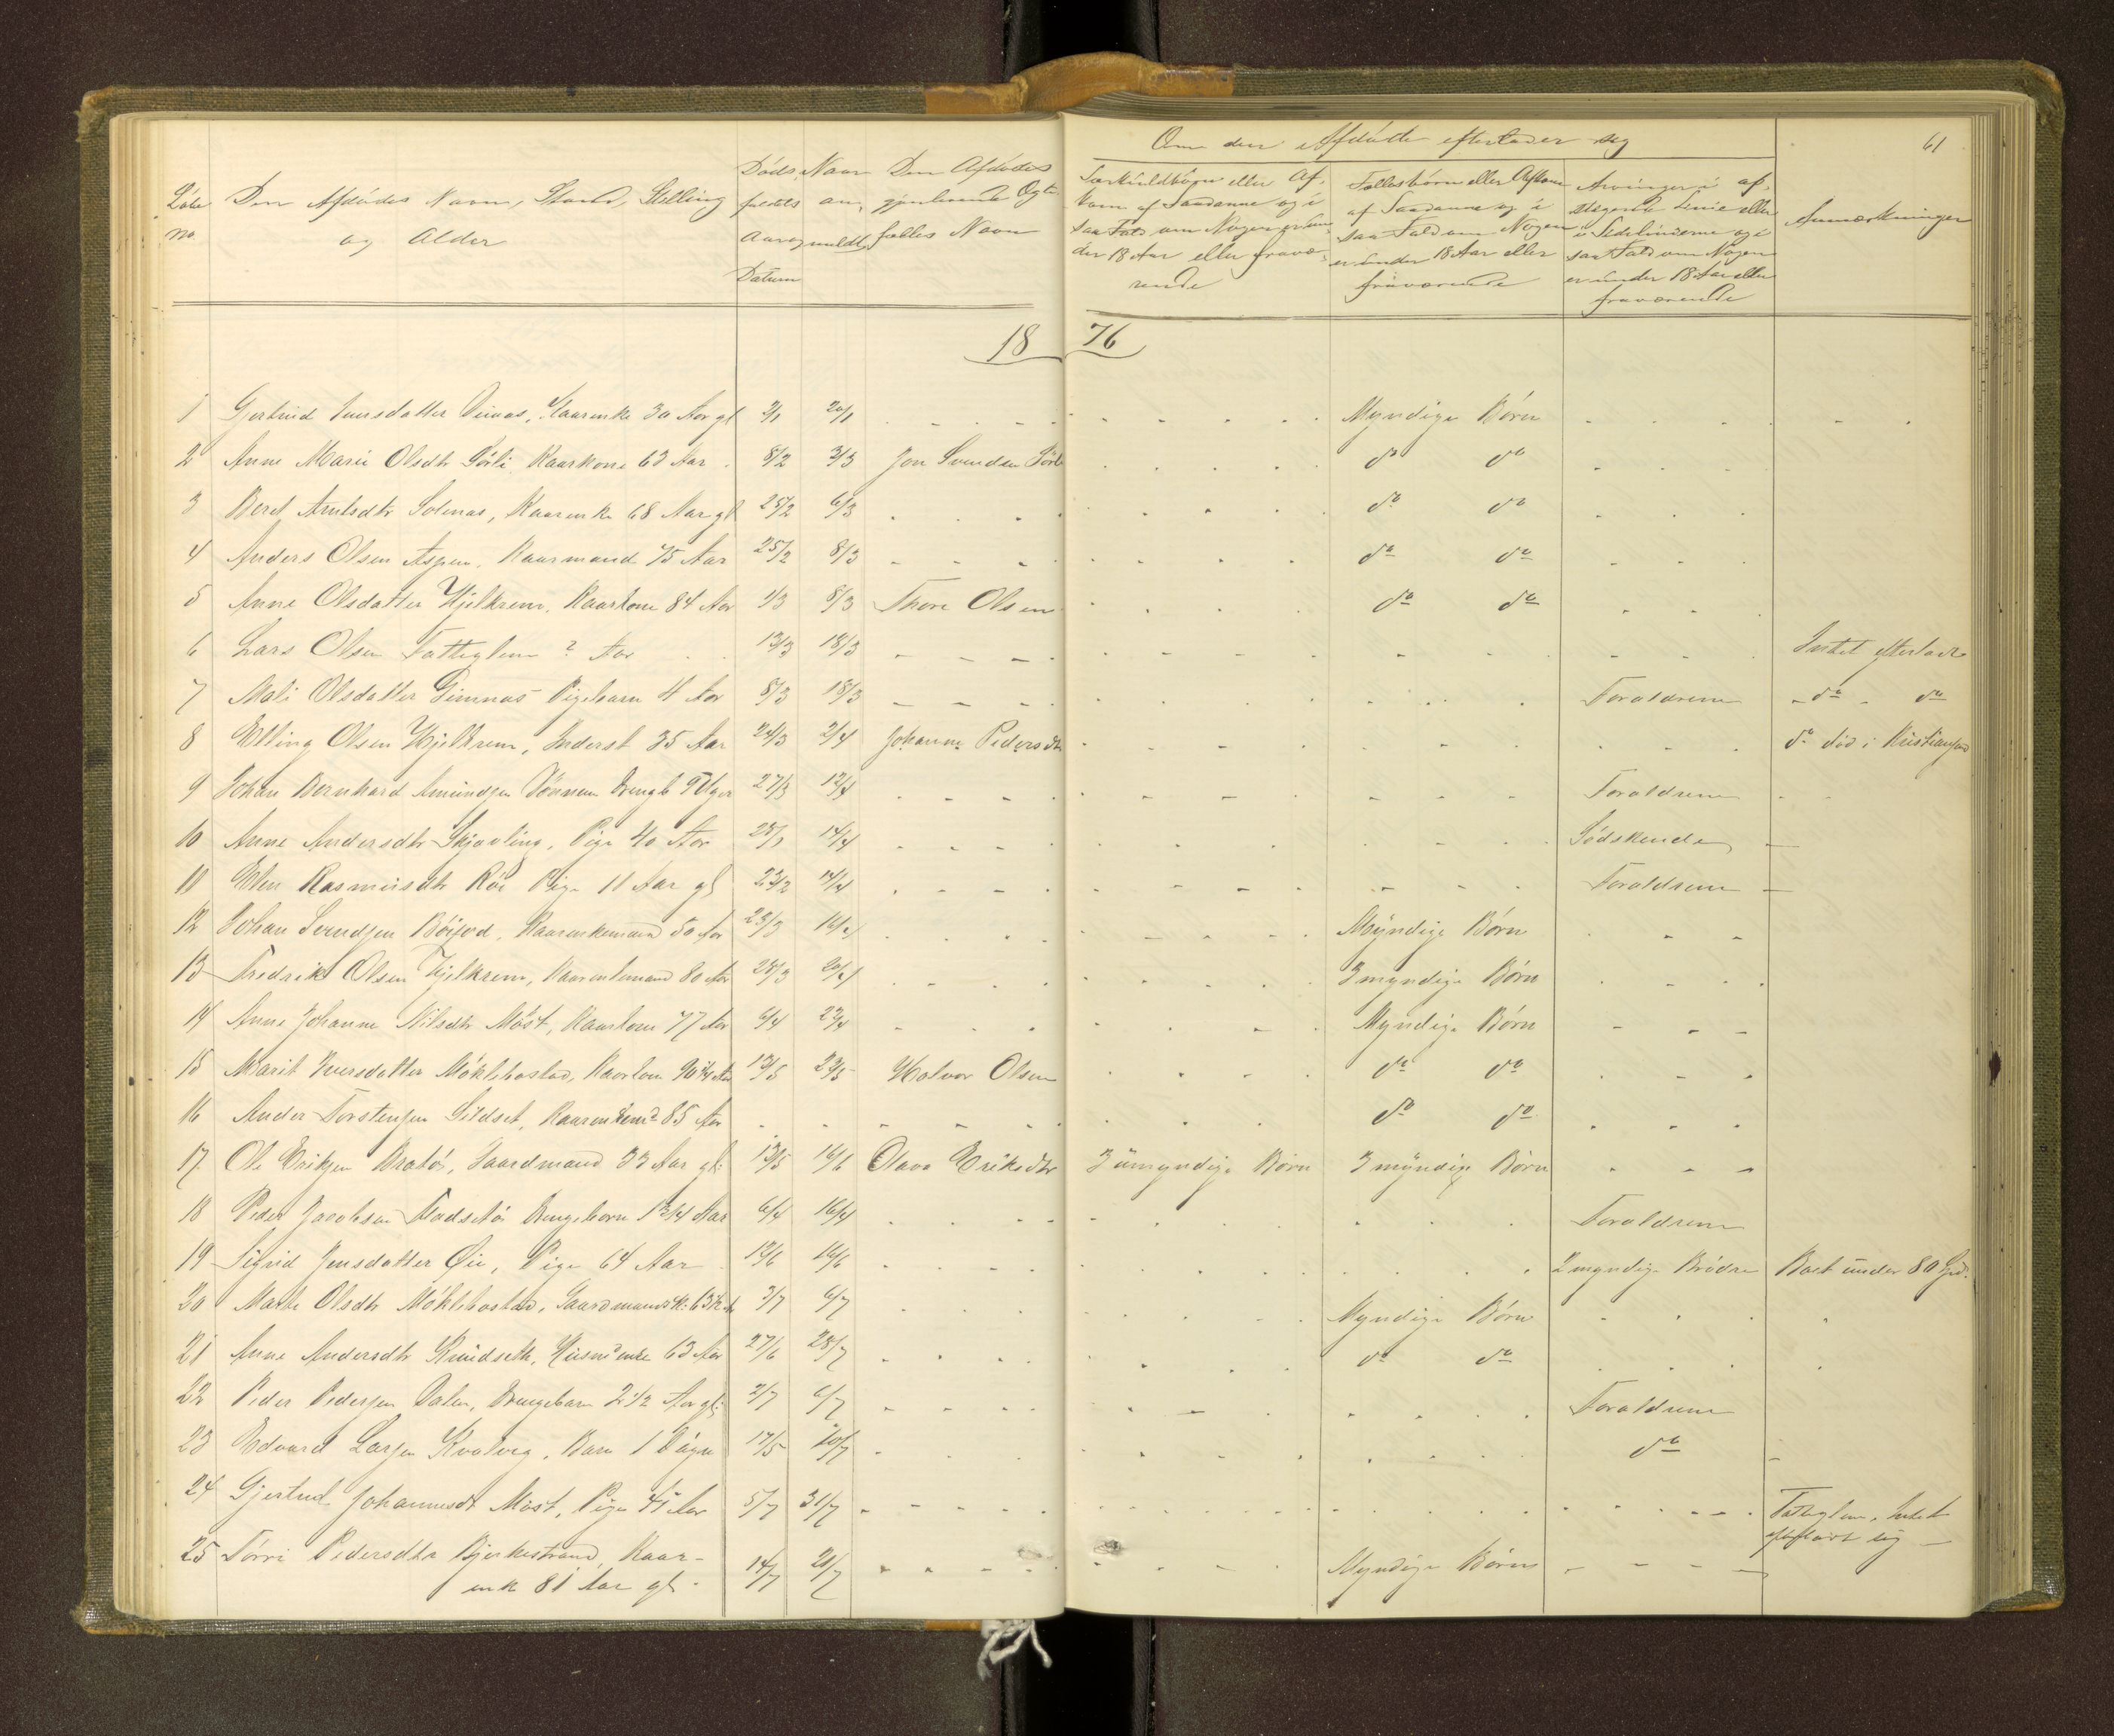 61
Om den Afdøde efterlader sig
Løbe No. Den Afdødes Navn, Stand, Stilling og Alder
Dødsfaldets Aar og Datum
Naar anmeldt
Den Afdødes gjenlevende Ægtefælles Navn
Særkuldbørn eller Afkom af Saadanne og i saa Fald om Nogen er under 18 Aar eller fraværende
Fællesbørn eller Afkom af Saadanne og i saa Fald om Nogen er under 18 Aar eller fraværende
Arvinger i opstigende Linie eller i Sidelinierne og i saa Fald om Nogen er under 18 Aar eller fraværende
Anmærkninger
1876
1 Gertrud Iversdatter Kaarenke 30 Aar gl 2/1 20/1 Myndige Børn
2 Anne Marie Olsdtr Sørli, Kaarkone 63 Aar 8/2 3/3 Jon Svendsen Sørli do do
3 Beret Arntsdtr Solenas, Kaarenke 68 Aar gl 25/2 6/3 do do
4 Anders Olsen Aspen, Kaarmand 75 Aar 25/2 8/3 do do
5 Anne Olsdatter Hjelkrem, Kaarkone 84 Aar 1/3 8/3 Thore Olsen do do
6 Lars Olsen Fattiglem ? Aar 13/3 18/3 Intet efterladt
7 Mali Olsdatter Gimnas Pigebarn 4 Aar 8/3 18/3 Foraldrene do do
8 Elling Olsen Hjelkrem, Inderst 35 Aar 24/3 2/4 Johanne Pedersdtr do død i Kristiansund
9 Johan Bernhard Amundsen 27/3 12/4 Foraldrene
10 Anne Andersdtr Skjovling, Pige 40 Aar 14/4 Sødskende
11 Elen Rasmusdtr Röe Pige 11 Aar gl 23/2 14/4 Foraldrene
12 Johan Svendsen Kaarenkemand 50 Aar 23/3 16/4 Myndige Børn
13 Fredrik Olsen Hjelkrem, Kaarenkemand 80 Aar 28/3 20/4 3 myndige Børn
14 Anne Johanne Nilsdtr Møst, Kaarkone 77 Aar 6/4 23/4 Myndige Børn
15 Marit Iversdatter Møklebostad, Kaarkone 13/5 23/5 Halvor Olsen do do
16 Ander Torstensen Sildset, Kaarenkemd 85 Aar do do
17 Ole Eriksen Bratøs, Gaardmand 33 Aar gl: 13/5 14/6 Olava Eriksdtr 3 umyndige Børn 3 myndige Børn
18 Peder Jacobsen Drengebarn 1 3/4 Aar 6/4 16/4 Foraldrene
19 Sigrid Jensdatter Øie, Pige 64 Aar 12/6 14/6 2 myndige Brødre Boet under 80 Spd.
20 Marte Olsdtr Møklebostad, 3/7 6/7 Myndige Børn
21 Anne Andersdtr Knudseth, 63 Aar 27/6 28/7 do do
22 Peder Pedersen Dalen, Drengebarn 2 1/2 Aar gl: 2/7 6/7 Foraldrene
23 Edvard Larsen Kvalvag, Barn 1 Døgn 17/5 20/7 do
24 Gjertrud Johannesdt Møst, Pige 41 Aar 5/7 31/7 Fattiglem, Intet efterladt sig
25 Pedersdtr Bjerkestrand, Kaar-
enke 81 Aar gl. 14/7 21/7 Myndige Børn